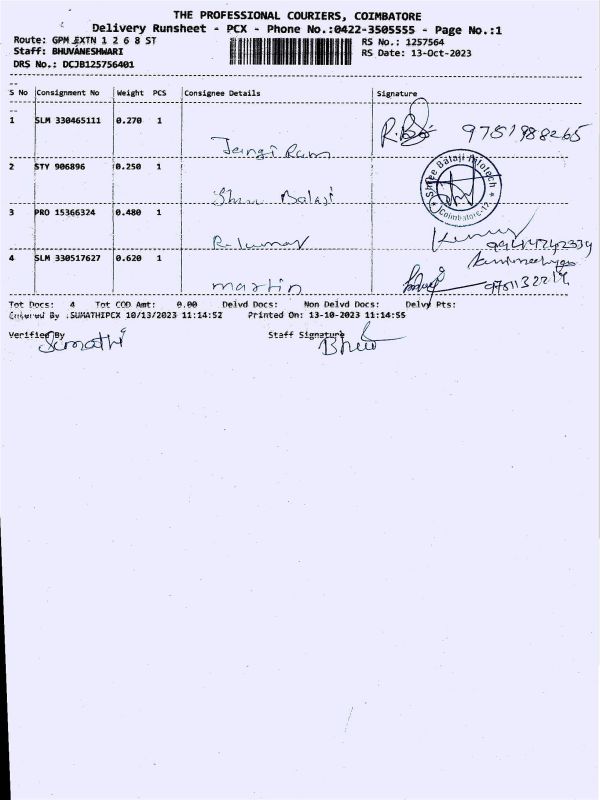 THE PROFESSIONAL COURIERS, COIMBATORE
Delivery Runsheet - PCX - Phone No.:0422-3505555 - Page No.:1
Route: GPM EXTN 1 2 6 8 ST RS No.: 1257564
Staff: BHUVANESHWARI RS Date: 13-Oct-2023
DRS No.: DCJB125756401
S No Consignment No Weight PCS Consignee Details Signature
1 SLM 330465111 0.270 1
Jangi Ram R.B 9751988265
2 STY 906896 0.250 1
Shree Balaji Shree Balaji Infotech Coimbatore-12
3 PRO 15366324 0.480 1
R. kumar Kumar
4 SLM 330517627 0.620 1
martin
Tot Docs: 4 Tot COD Amt: 0.00 Delvd Docs: Non Delvd Docs: Delvy Pts:
Entered By :SUMATHIPCX 10/13/2023 11:14:52 Printed On: 13-10-2023 11:14:55
Verified By Staff Signature
Sumathi Bhuv